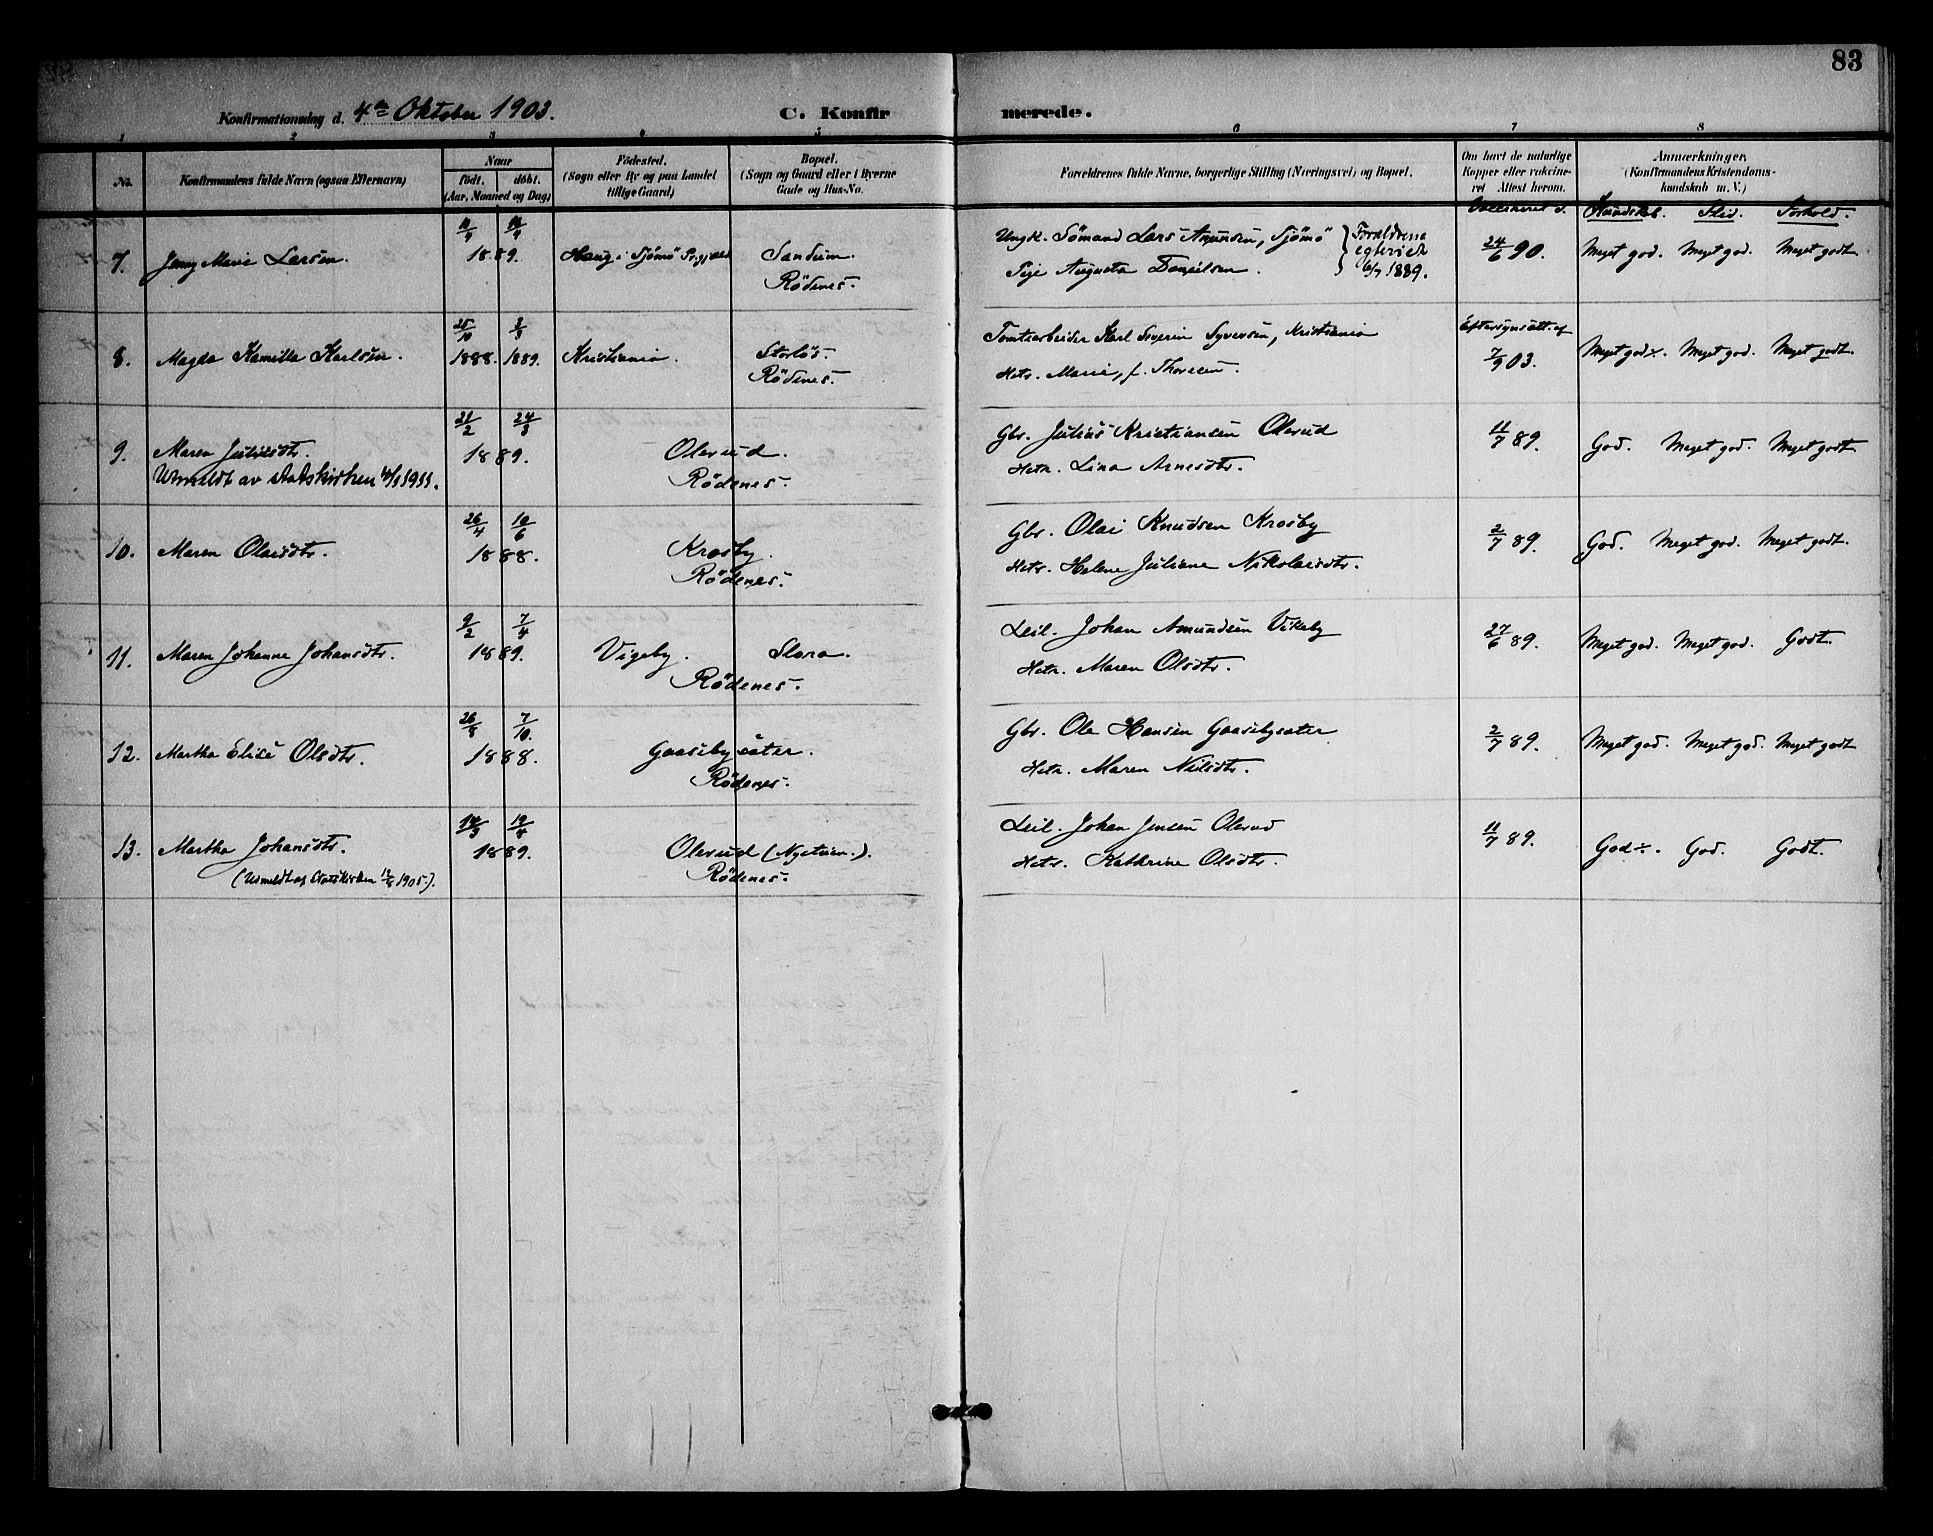 83
Konfirmationsdag d. 4de Oktober 1903. C. Konfirmerede.
1 2 3 4 5 6 7 8
No.
Konfirmandens fulde Navn (ogsaa Efternavn)
Naar
födt. döbt.
(Aar, Maaned og Dag)
Födested.
(Sogn eller By og paa Landet
tillige Gaard)
Bopæl.
(Sogn og Gaard eller i Byerne
Gade og Hus-No.
Forældrenes fulde Navne, borgerlige Stilling (Næringsvei) og Bopæl.
Om havt de naturlige
Kopper eller vakcine-
ret Attest herom.
Anmærkninger.
(Konfirmandens Kristendoms-
kundskab m. V.)
Vaccineret d. Kundskb. Flid. Forhold.
7. Jenny Marie Larsen. 1889. Haug i Sjömö Prgjæld Sandum.
Rödenes.
Ungk. Sömand Lars Amundsen, Sjömö
Pige Augusta Danielsen.
Forældrene
egteviet
6/7 1889.
24/6 90. Meget god. Meget god. Meget godt
8. Magda Kamilla Karlsen. 25/10 1888. 3/3 1889. Kristiania. Storlös.
Rödenes.
Tomtearbeider Karl Severin Syversen, Kristiania
Hstr. Marie, f. Thoresen.
Eftersynsatt. af
7/9 03. Meget god÷. Meget god. Meget godt.
9. Maren Juliusdtr. 21/2 24/3 1889. Olerud.
Rödenes.
Utmeldt av statskirken 1911.
Gbr. Julius Kristiansen Olerud
Hstr. Lina Arnesdtr.
11/7 89. God. Meget god. Meget godt
10. Maren Olaisdtr. 26/4 10/6 1888. Krosby.
Rödenes.
Gbr. Olai Knudsen Krosby
Hstr. Helene Juliane Nikolaisdtr.
2/7 89. God. Meget god. Meget godt.
11. Maren Johanne Johansdtr. 9/2 7/4 1889. Vigeby. Slora.
Rödenes.
Leil. Johan Amundsen Vikeby
Hstr. Maren Olsdtr.
27/6 89. Meget god. Meget god. Godt.
12. Martha Elise Olsdtr. 26/8 7/10. 1888. Gaasebysæter.
Rödenes.
Gbr. Ole Hansen Gaasebysæter
Hstr. Maren Nilsdtr.
2/7 89. Meget god. Meget god. Meget godt
13. Martha Johansdtr. 14/3 19/4 1889. Olerud (Nyetuen.).
Rödenes.
(Udmeldt af Statskirken 1905).
Leil. Johan Jensen Olerud
Hstr. Kathrine Olsdtr.
11/7 89. God÷. God. Godt.